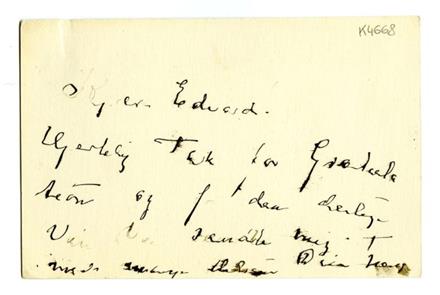 K4668
Kjære Edvard.
Hjertelig Tak for Gratula
tion og f den deilige
Vin Du sendte mig. I
med mange hilsen Din